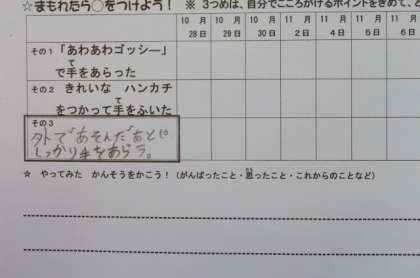 ☆まもれたら○をつけよう! ※ 3つめは、自分でこころがけるポイントをきめて、
10 月 10 月 10 月 11 月 11 月 11 月 11 月
28日 29日 30日 2日 4日 5日 6日
その1 「あわあわゴッシー」
て
で手をあらった
その2 きれいな ハンカチ
て
をつかって手をふいた
その3
外で「あそんだ」あとは
しっかり手をあらう。
☆ やってみた かんそうをかこう!(がんばったこと・思ったこと・これからのことなど)